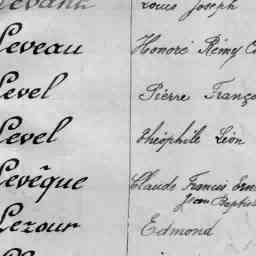 Louis Joseph
Leveau Honoré Rémy
Level Pierre
Level Théophile Léon
Levêque Claude Francis
Jean
Lezour Edmond